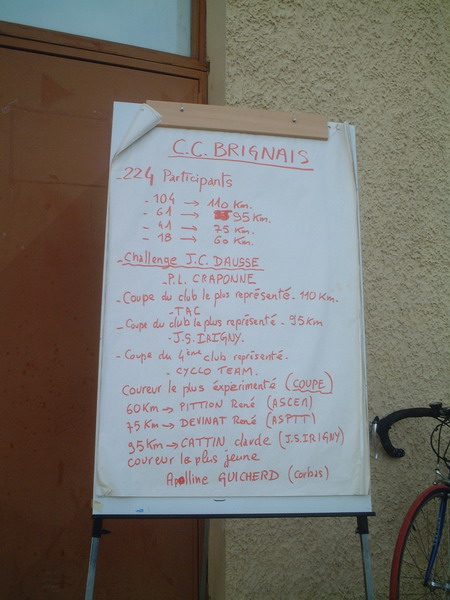 C.C. BRIGNAIS
- 224 Participants
- 104 → 110 Km.
- 61 → 95 Km.
- 41 → 75 Km.
- 18 → 60 Km.
- Challenge J.C. DAUSSE
- P.L. CRAPONNE
- Coupe du club le plus représenté - 110 Km.
- TAC
- Coupe du club le plus représenté - 95 Km
- J.S. IRIGNY.
- Coupe du 4ème club représenté.
- CYCLO TEAM.
Coureur le plus éxpérimenté (COUPE)
60 Km → PITTION René (ASCEM)
75 Km → DEVINAT René (ASPTT)
95 Km → CATTIN claude (J.S. IRIGNY)
coureur le plus jeune
Apolline GUICHERD (Corbas)